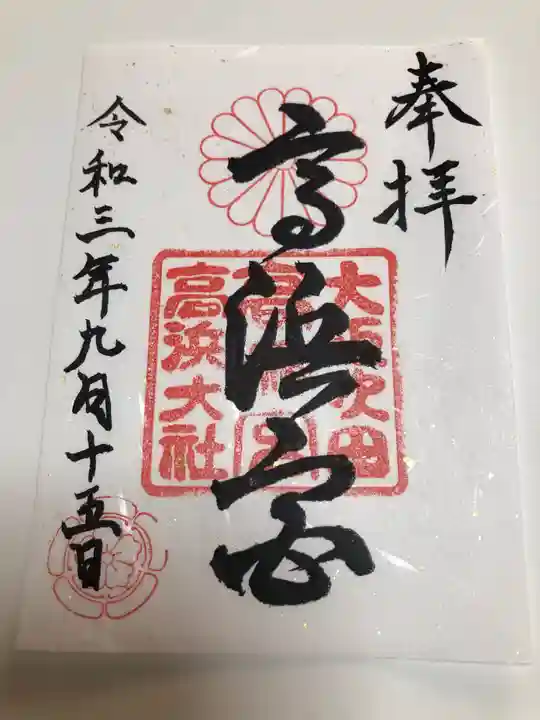 奉拝
高浜宮
大阪吹田
高浜大社
令和三年九月十五日